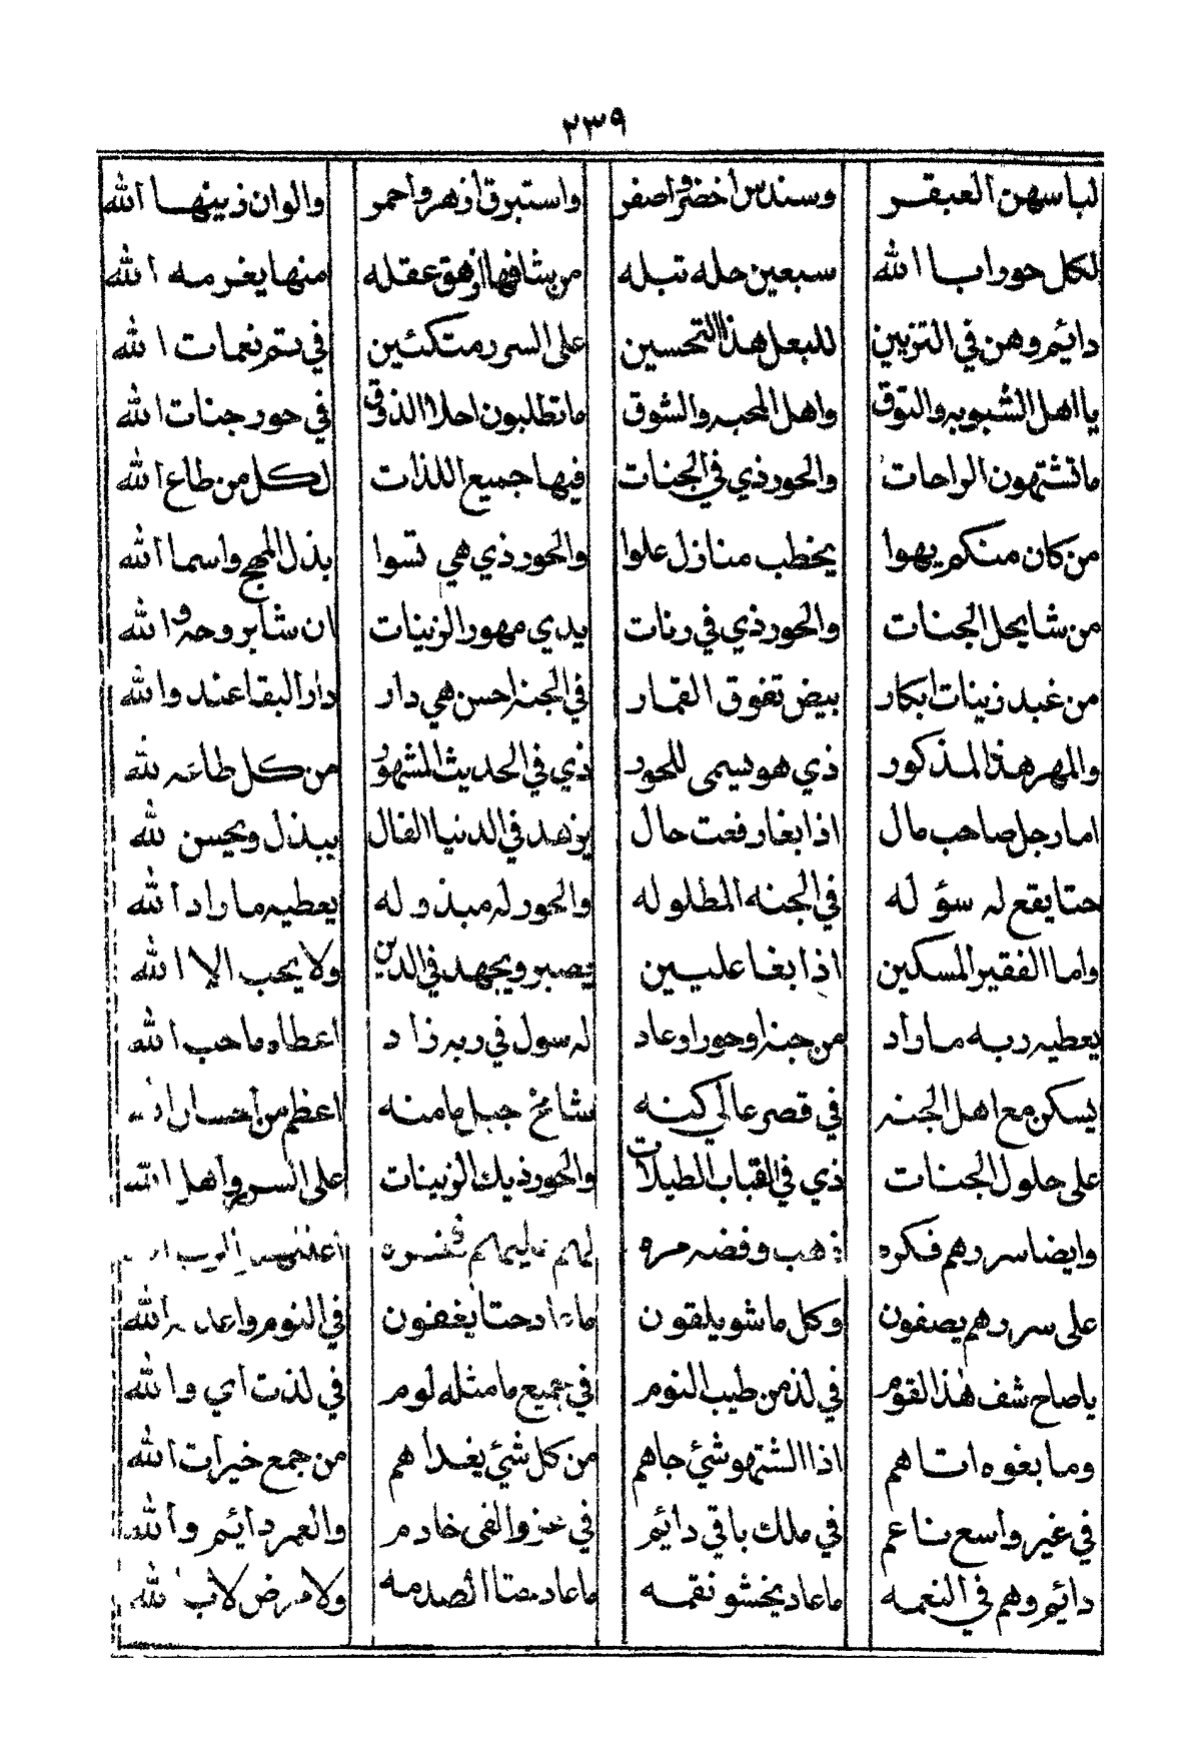 ٢٣٩
لباسهن العبقر وسندس أخضر واصفر واستبرق أزهر واحمر والوان زينها الله
لكل حورا با الله سبعين حله تبله من يشافها أزهق عقله منها يغرمه الله
دائيم وهن في التزيين للبعل هذا التحسين على السرر متكئين في ستم نعمات الله
يا اهل الشبوبه والتوق واهل المحبه والشوق ما تطلبون احلا الذوق في حور جنات الله
ما تشتهون الراحات والحور ذي في الجنات فيها جميع اللذات لكل من طاع الله
من كان منكم يهوا يخطب منازل علوا والحور ذي هي تسوا بذل المهج واسما الله
من شا يحل الجنات والحور ذي في رنات يدي مهور الزينات ان شا بروحه والله
من غبد زينات ابكار بيض تفوق القمار في الجنه احسن هي دار دار البقا عند والله
والمهر هذا المذكور ذي هو يسمى للحور ذي في الحديث المشهور من كل طاعه لله
اما رجل صاحب مال اذا بغا رفعت حال يزهد في الدنيا الفال يبذل ويحسن لله
حتا يقع له سؤ له في الجنه المطلوله والحور له مبذوله يعطيه ما راد الله
واما الفقير المسكين اذا بغا عليين يصبر ويجهد في الدين ولا يحب الا الله
يعطيه ربه ما راد من جنه وحور اوعاد له سول في ربه زاد اعطاه ما حب الله
يسكن مع اهل الجنه في قصر عالي كنه شامخ جبل ما منه اعظم من أحسان
على حلول الجنات ذي في القباب الطيلات والحور ذيك الزينات على السرر وأهل الله
وايضا سررهم فكره ذهب وفضه مره لهم
على سررهم يصفون وكل ما شو يلقون ما عاد حتا يغفون في النوم الله
يا صاح شف هذا القوم في لذ من طيب النوم في جميع ما مثله لوم في لذت اي والله
وما بغوه اتاهم اذا اشتهو شئ جاهم من كل شئ يغدا هم من جمع خيرات الله
في غير واسع ناعم في ملك باقي دائيم في عز والفى خادم والعمر دائيم والله
دائيم وهم في النعمه ما عاد يخشو نقمه ما عاد الصدمه ولا مرض لله